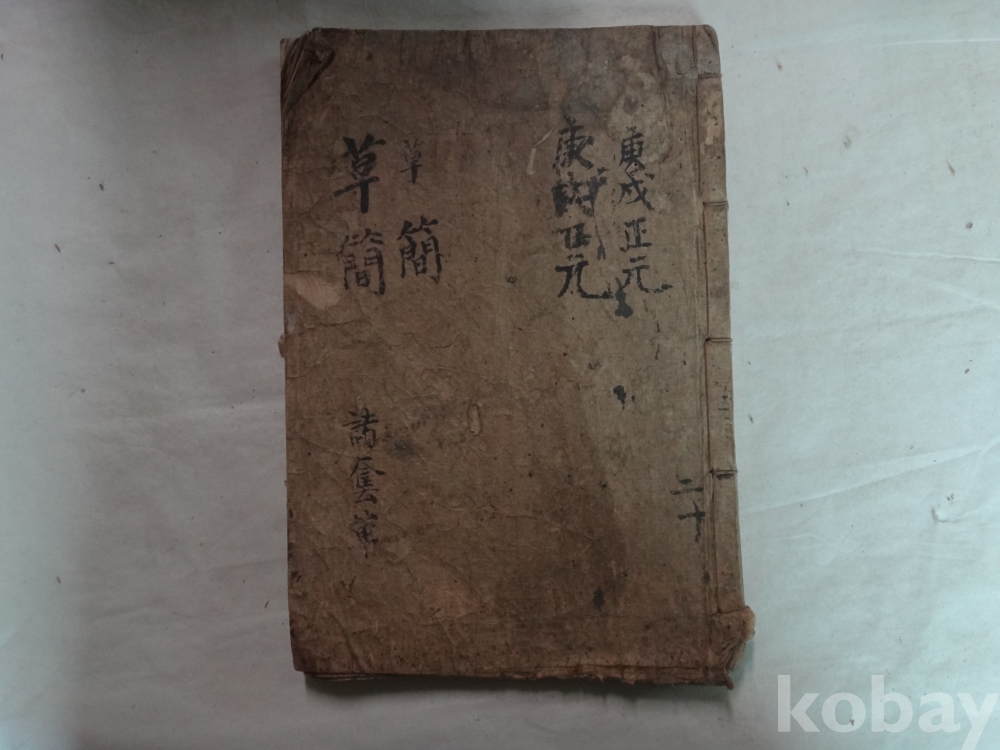 庚戌正元
庚戌正元
草簡
草簡
諸套
二十
kobay